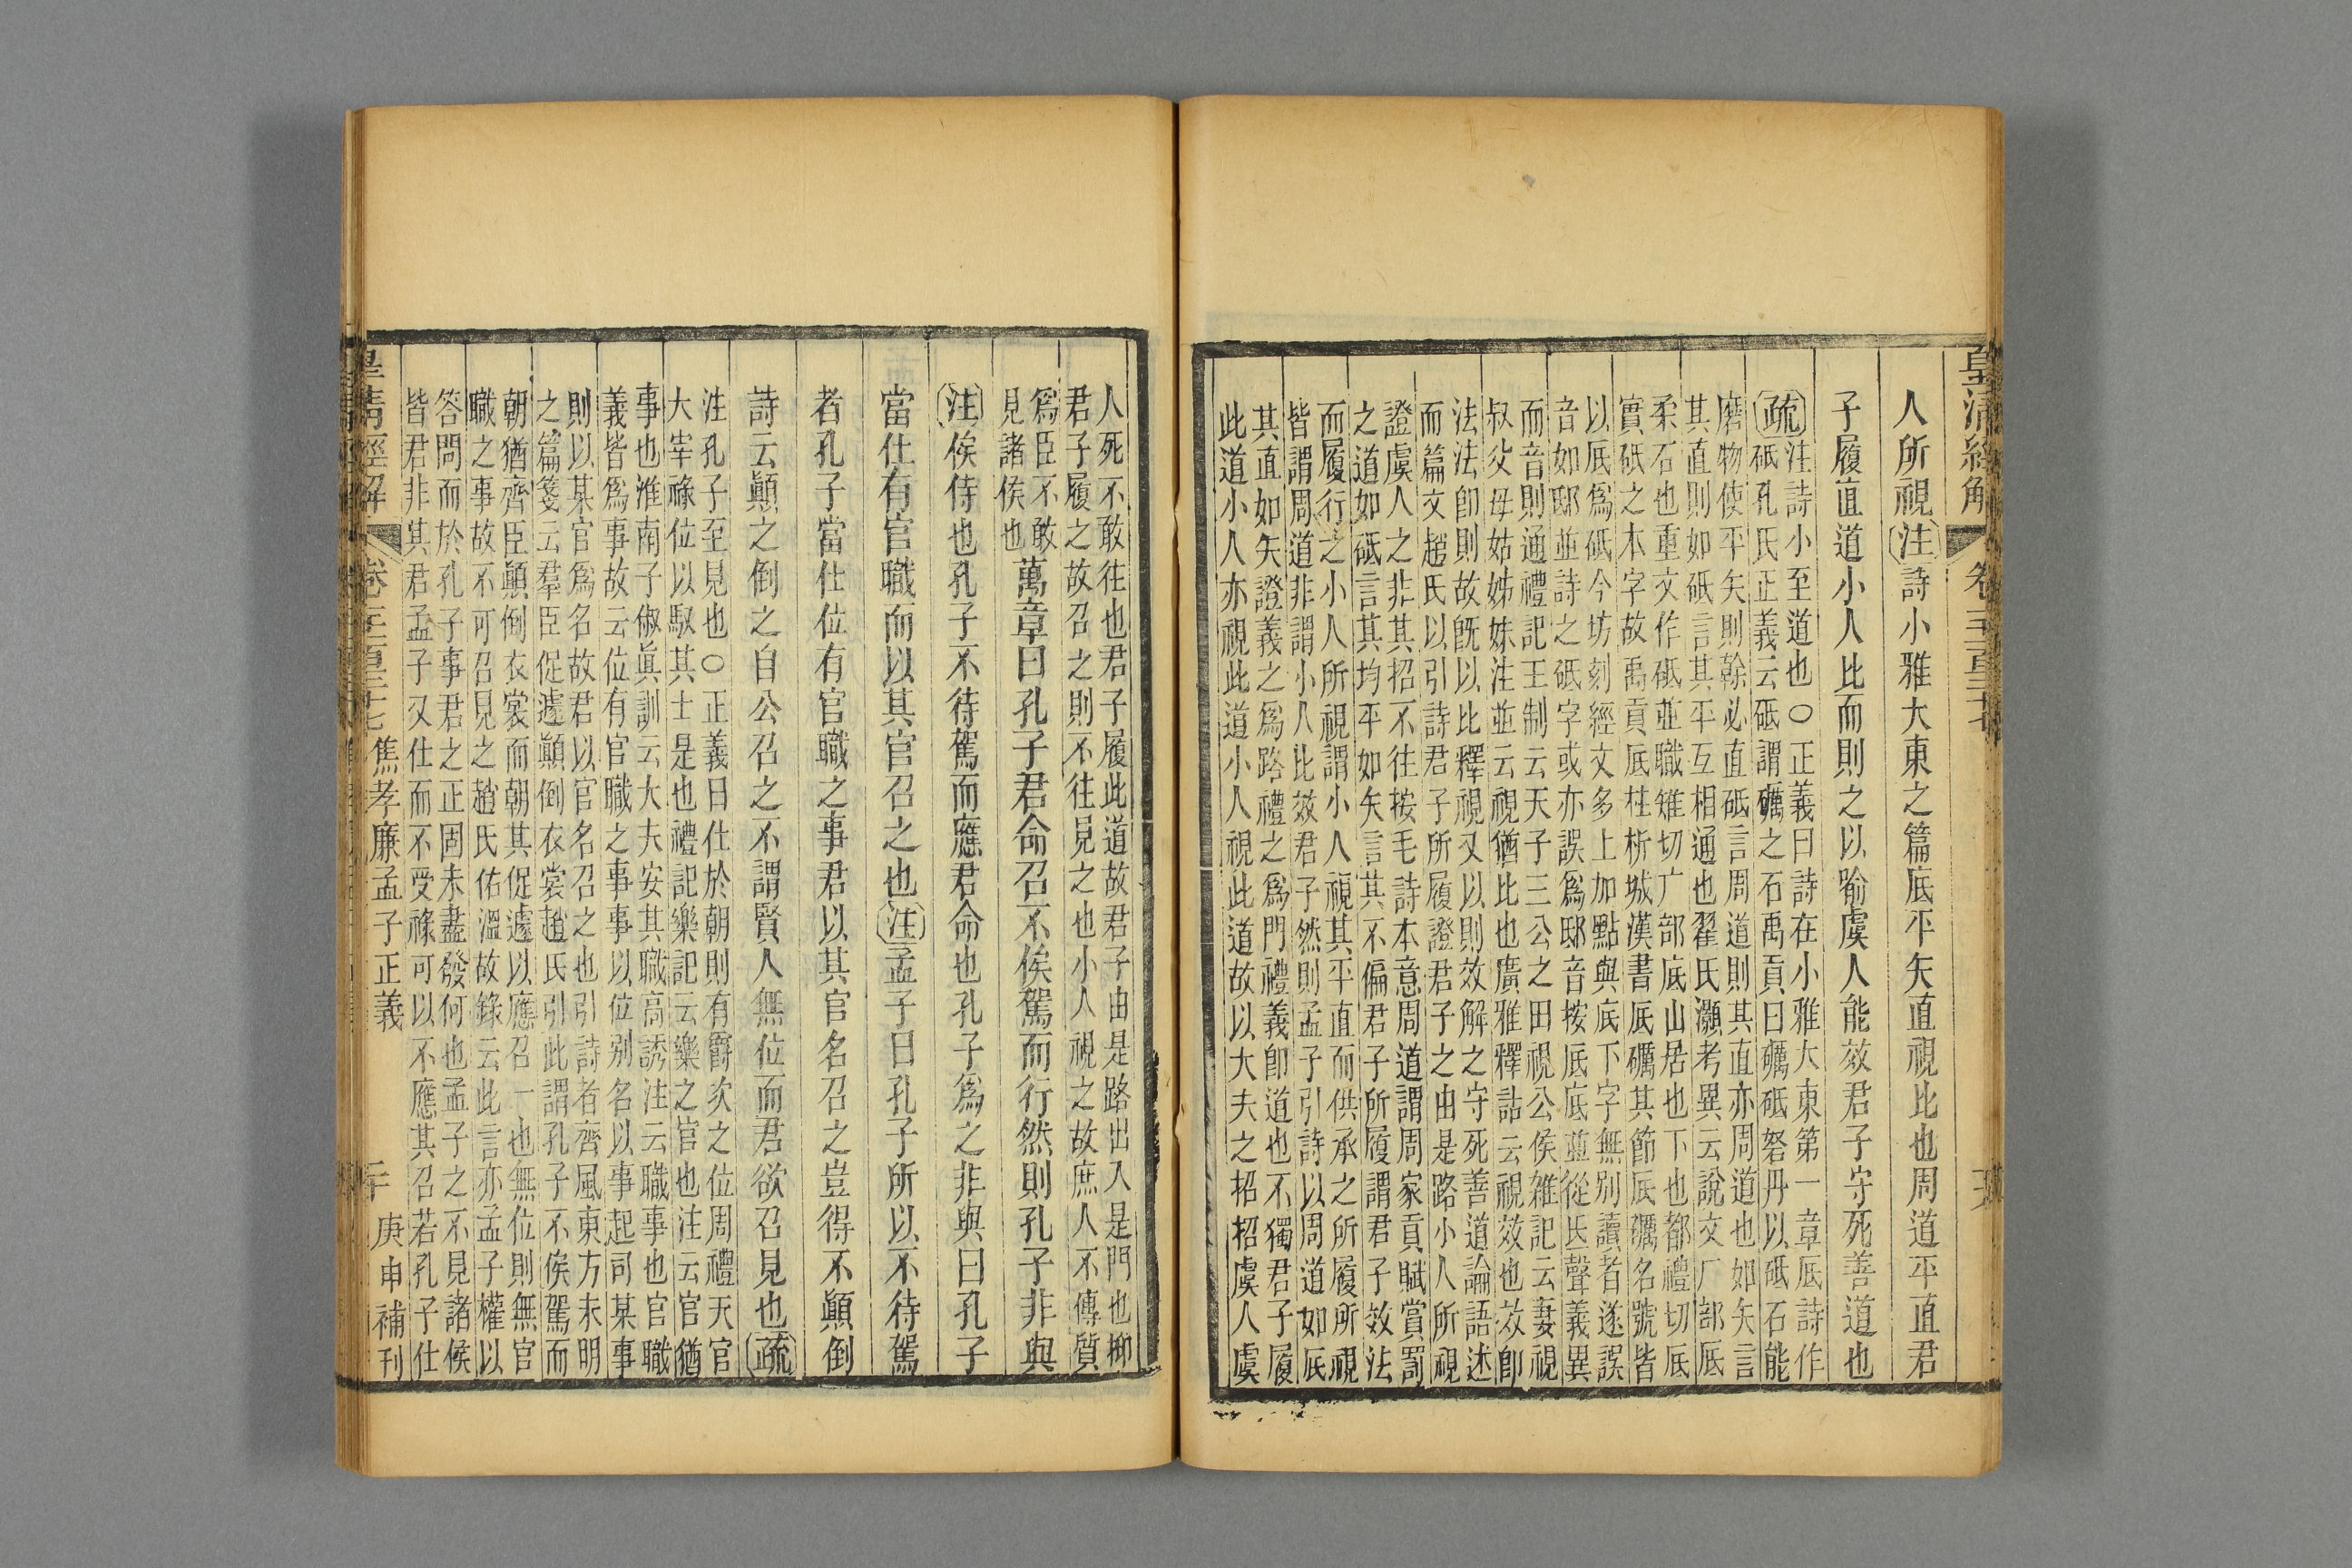 皇清經解
人所視注詩小雅大東之篇底平矢直視比也周道平直君
子履直道小人比而則之以喻虞人能效君子守死善道也
疏
注詩小至道也○正義曰詩在小雅大東第一章厎詩作
砥孔氏正義云砥謂礪之石禹貢曰礪砥砮丹以砥石能
磨物使平矢則幹必直砥言周道則其直亦周道也如矢言
其直則如砥言其平互相通也翟氏灝考異云說文厂部厎
柔石也重文作砥並職雉切广部底山居也下也都禮切厎
實砥之本字故禹貢厎柱析城漢書厎礪其節厎礪名號皆
以厎爲砥今坊刻經文多上加點與底下字無別讀者遂誤
音如邸並詩之砥字或亦誤爲邸音按厎底並從氐聲義異
而音則通禮記王制云天子三公之田視公侯雜記云妻視
叔父母姑姊妹注並云視猶比也廣雅釋詁云視效也效卽
法法卽則故旣以比釋視又以則效解之守死善道論語述
而篇文趙氏以引詩君子所履證君子之由是路小人所視
證虞人之非其招不往按毛詩本意周道謂周家貢賦賞罰
之道如砥言其均平如矢言其不偏君子所履謂君子效法
而履行之小人所視謂小人視其平直而供承之所履所視
皆謂周道非謂小人比效君子然則孟子引詩以周道如厎
其直如矢證義之爲路禮之爲門禮義卽道也不獨君子履
此道小人亦視此道小人視此道故以大夫之招招虞人虞
人死不敢往也君子履此道故君子由是路出入是門也抑
君子履之故召之則不往見之也小人視之故庶人不傳質
爲臣不敢
見諸侯也
萬章曰孔子君命召不俟駕而行然則孔子非與
注俟待也孔子不待駕而應君命也孔子爲之非與曰孔子
當仕有官職而以其官召之也注孟子曰孔子所以不待駕
者孔子當仕位有官職之事君以其官名召之豈得不顚倒
詩云顚之倒之自公召之不謂賢人無位而君欲召見也疏
注孔子至見也○正義曰仕於朝則有爵次之位周禮天官
大宰祿位以馭其士是也禮記樂記云樂之官也注云官猶
事也淮南子俶眞訓云大夫安其職高誘注云職事也官職
義皆爲事故云位有官職之事事以位別名以事起司某事
則以某官爲名故君以官名召之也引詩者齊風東方未明
之篇箋云羣臣促遽顚倒衣裳趙氏引此謂孔子不俟駕而
朝猶齊臣顚倒衣裳而朝其促遽以應召一也無位則無官
職之事故不可召見之趙氏佑溫故錄云此言亦孟子權以
答問而於孔子事君之正固未盡發何也孟子之不見諸侯
皆君非其君孟子又仕而不受祿可以不應其召若孔子仕
皇清經解
焦孝廉孟子正義
庚申補刊